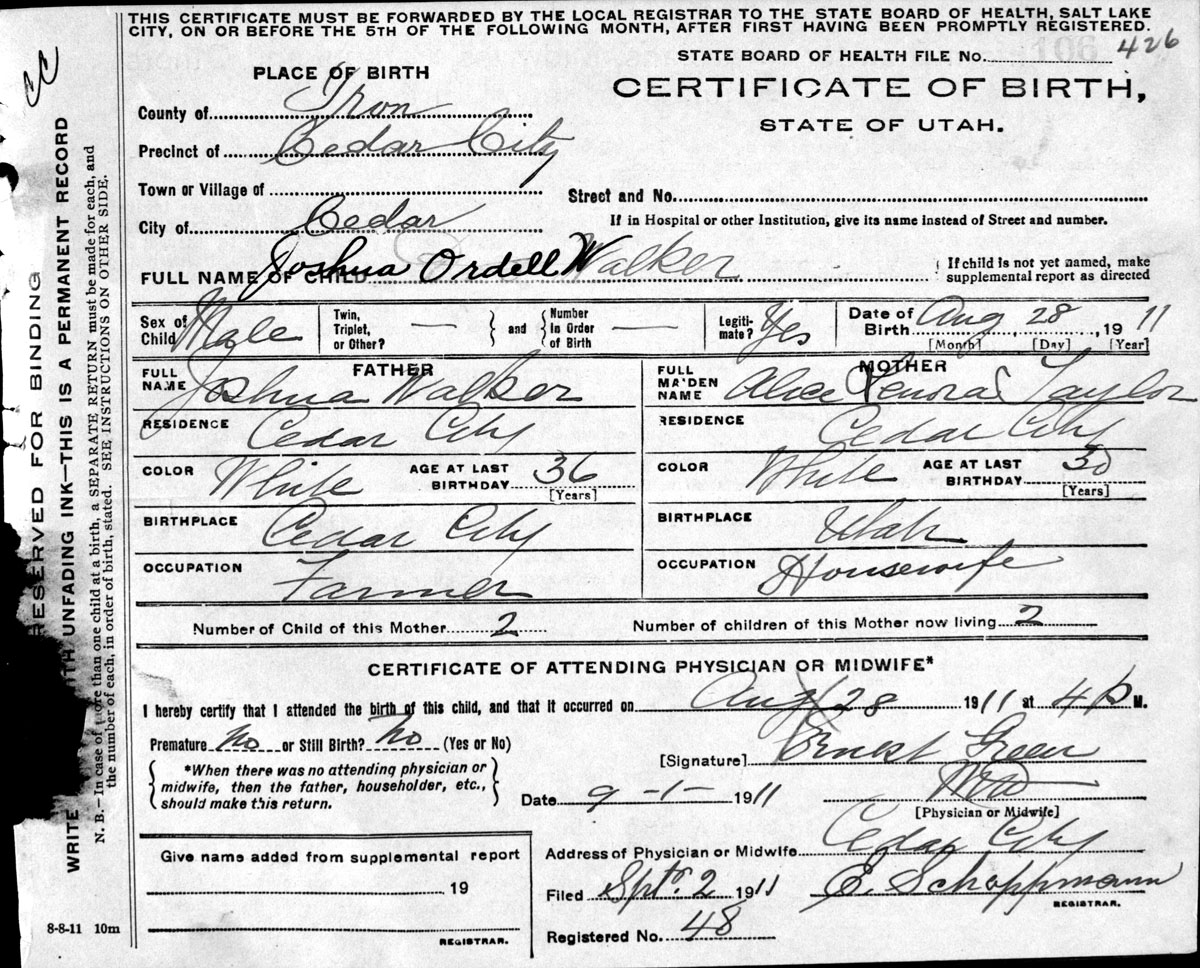 THIS CERTIFICATE MUST BE FORWARDED BY THE LOCAL REGISTRAR TO THE STATE BOARD OF HEALTH, SALT LAKE
CITY, ON OR BEFORE THE 5TH OF THE FOLLOWING MONTH, AFTER FIRST HAVING BEEN PROMPTLY REGISTERED.
STATE BOARD OF HEALTH FILE No. 426
CERTIFICATE OF BIRTH,
STATE OF UTAH.
CC
RESERVED FOR BINDING
WRITE WITH UNFADING INK—THIS IS A PERMANENT RECORD
N. B.—In case of more than one child at a birth, a SEPARATE RETURN must be made for each, and
the number of each, in order of birth, stated. SEE INSTRUCTIONS ON OTHER SIDE.
PLACE OF BIRTH
County of Iron
Precinct of Cedar City
Town or Village of
Street and No.
City of Cedar
If in Hospital or other Institution, give its name instead of Street and number.
FULL NAME OF CHILD Joshua Ordell Walker
If child is not yet named, make
supplemental report as directed
Sex of Child Male
Twin, Triplet, or Other? —
and
Number In Order of Birth —
Legiti-mate? Yes
Date of Birth Aug 28, 1911
[Month] [Day] [Year]
FATHER
FULL NAME Joshua Walker
RESIDENCE Cedar City
COLOR White AGE AT LAST BIRTHDAY 36
[Years]
BIRTHPLACE Cedar City
OCCUPATION Farmer
MOTHER
FULL MAIDEN NAME Alice Lenora Taylor
RESIDENCE Cedar City
COLOR White AGE AT LAST BIRTHDAY 30
[Years]
BIRTHPLACE Utah
OCCUPATION Housewife
Number of Child of this Mother 2
Number of children of this Mother now living 2
CERTIFICATE OF ATTENDING PHYSICIAN OR MIDWIFE*
I hereby certify that I attended the birth of this child, and that it occurred on Aug 28 1911 at 4 P M.
Premature No or Still Birth? No (Yes or No)
[Signature] Ernest Green
*When there was no attending physician or
midwife, then the father, householder, etc.,
should make this return.
Date 9-1- 1911
MD
[Physician or Midwife]
Give name added from supplemental report
19
REGISTRAR.
Address of Physician or Midwife Cedar City
Filed Sptr. 2 1911 E. Schoppmann
REGISTRAR.
Registered No. 48
8-8-11 10m